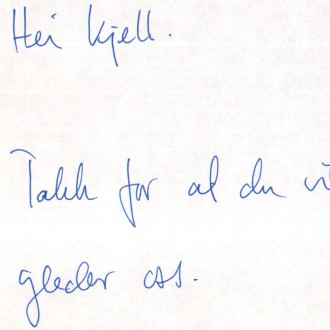 Hei Kjell.
Takk for at du vi
gleder oss.